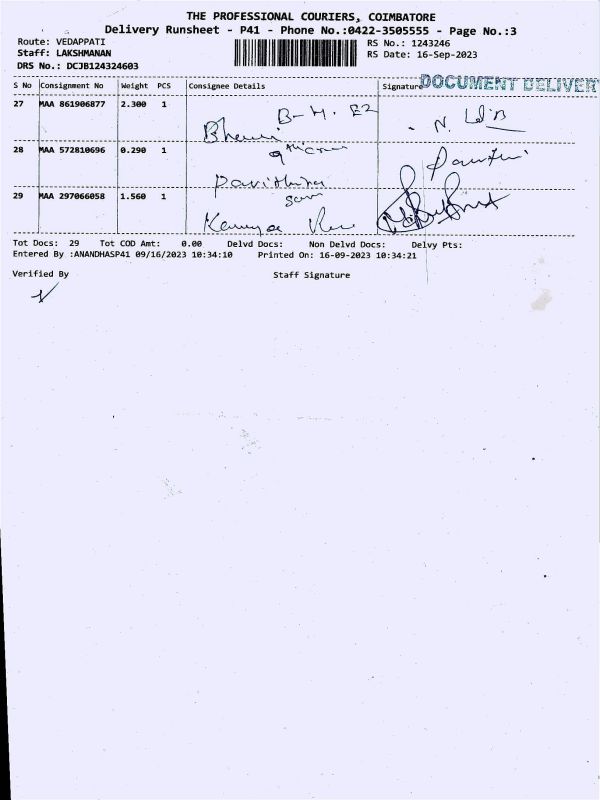 THE PROFESSIONAL COURIERS, COIMBATORE
Delivery Runsheet - P41 - Phone No.:0422-3505555 - Page No.:3
Route: VEDAPPATI
RS No.: 1243246
Staff: LAKSHMANAN
RS Date: 16-Sep-2023
DRS No.: DCJB124324603
S No Consignment No Weight PCS Consignee Details Signature DOCUMENT DELIVER
27 MAA 861906877 2.300 1
28 MAA 572810696 0.290 1
Pavithra
29 MAA 297066058 1.560 1
Tot Docs: 29 Tot COD Amt: 0.00 Delvd Docs: Non Delvd Docs: Delvy Pts:
Entered By :ANANDHASP41 09/16/2023 10:34:10 Printed On: 16-09-2023 10:34:21
Verified By Staff Signature